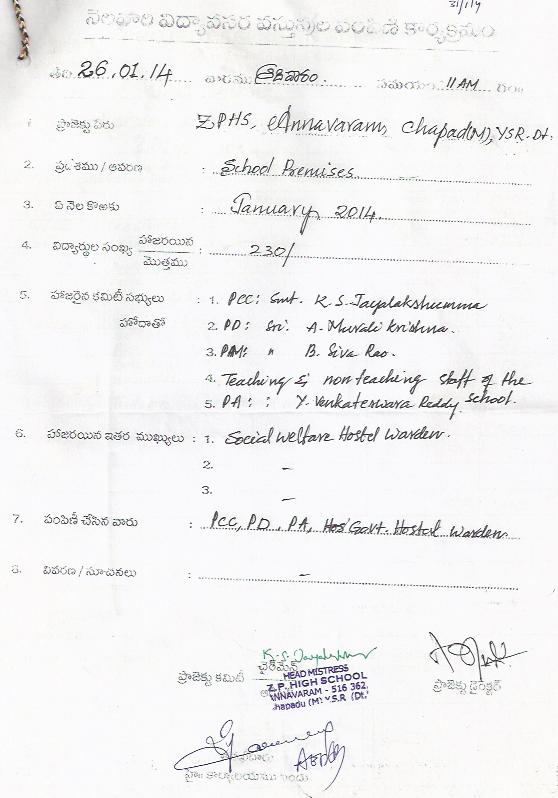 31/1/14
నెలవారి విద్యావసర వస్తువుల పంపిణీ కార్యక్రమం
తేది 26.01.14 వారము ఆదివారం. సమయం 11 AM గం॥
1 ప్రాజెక్టు పేరు ZPHS, Annavaram, Chapad(M), YSR. Dt.
2. ప్రదేశము / ఆవరణ : School Premises
3. ఏ నెల కొఱకు : January, 2014.
4. విద్యార్థుల సంఖ్య హాజరయిన / మొత్తము : 230/
5. హాజరైన కమిటీ సభ్యులు : 1. PCC: Smt. K.S. Jayalakshumma
హోదాతో 2. PD: Sri. A. Murali Krishna.
3. PAM: " B. Siva Rao.
4. Teaching & non teaching staff of the school.
5. PA: : Y. Venkateswara Reddy
6. హాజరయిన ఇతర ముఖ్యులు : 1. Social Welfare Hostel Warden.
2. –
3. –
7. పంపిణీ చేసిన వారు : PCC, PD, PA, Hos Govt. Hostel Warden
8. వివరణ / సూచనలు : –
ప్రాజెక్టు కమిటీ చైర్‌మెన్
ప్రాజెక్టు డైరెక్టర్
HEAD MISTRESS
Z.P. HIGH SCHOOL
ANNAVARAM - 516 362,
hapadu (M) Y.S.R (Dt.)